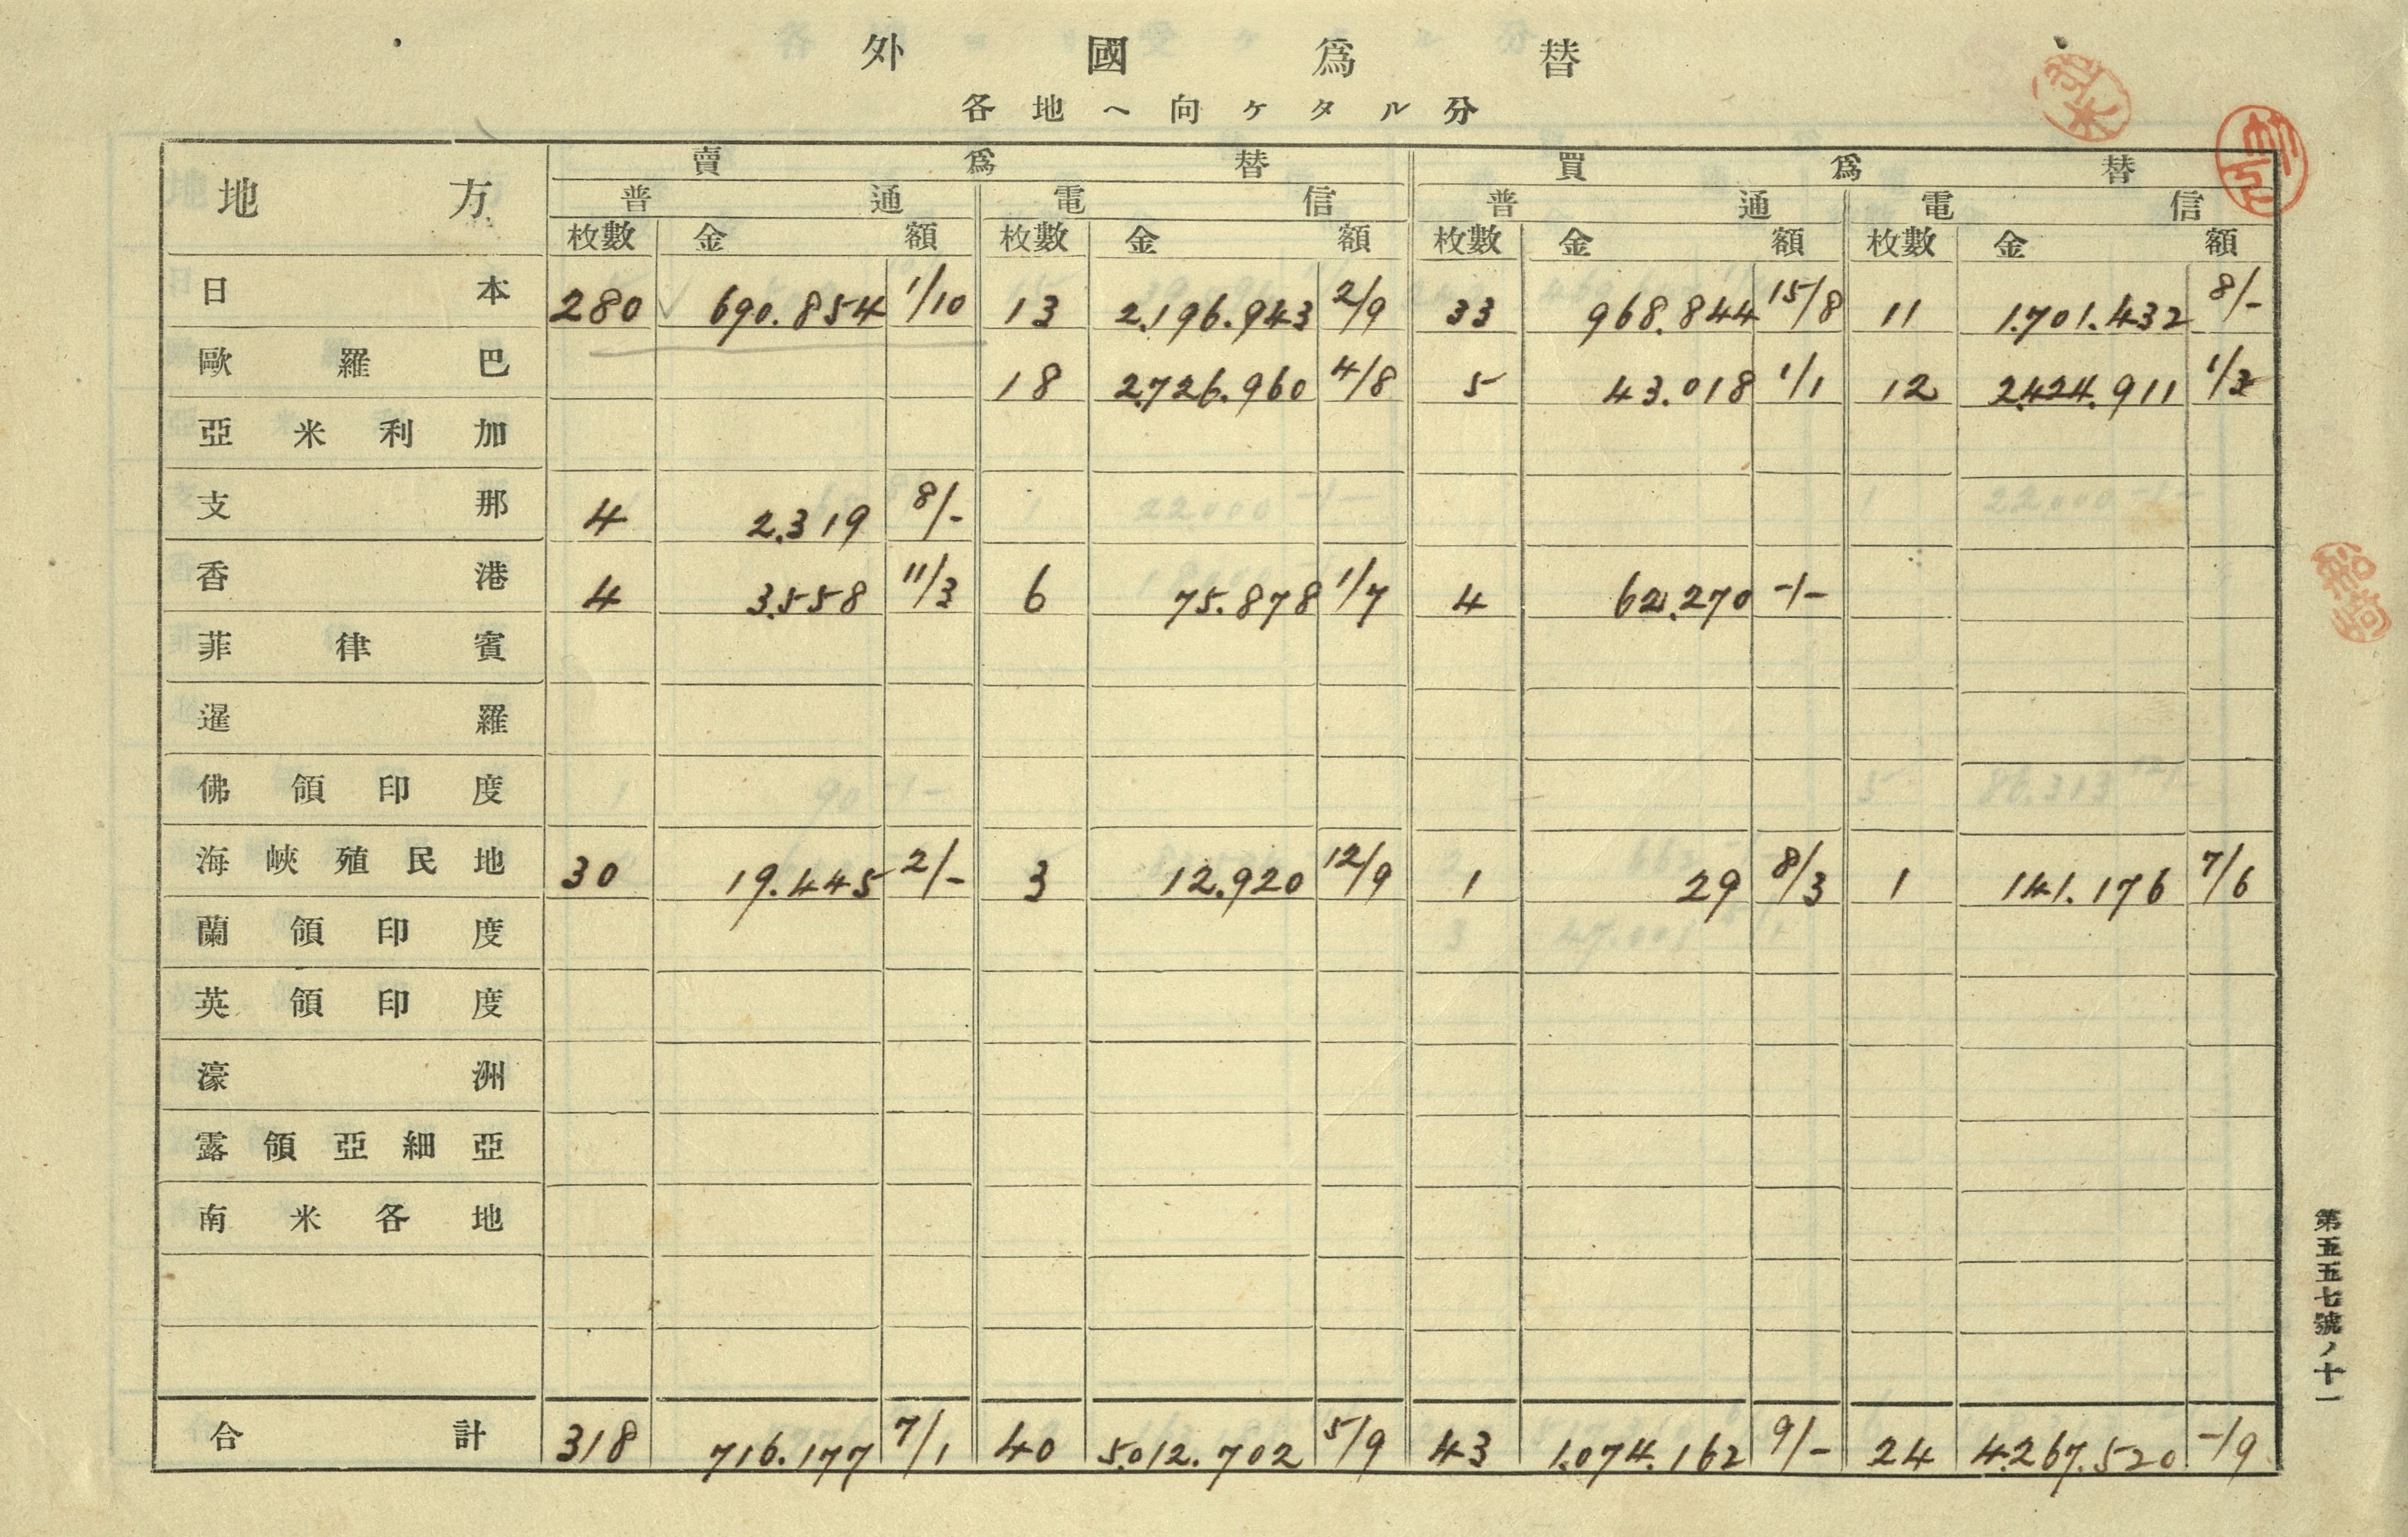 外國爲替
各地ヘ向ケタル分
地方 賣爲替 買爲替
普通 電信 普通 電信
枚數 金額 枚數 金額 枚數 金額 枚數 金額
日本 280 690.854 1/10 13 2,196.943 2/9 33 968.844 15/8 11 1.701.432 8/-
歐羅巴 18 2,726.960 4/8 5 43.018 1/1 12 2,424.911 1/3
亞米利加
支那 4 2,319 8/-
香港 4 3,558 11/3 6 75.878 1/7 4 62,270 -/-
菲律賓
暹羅
佛領印度
海峽殖民地 30 19.445 2/- 3 12,920 12/9 1 29 8/3 1 141.176 7/6
蘭領印度
英領印度
濠洲
露領亞細亞
南米各地
合計 318 716.177 7/1 40 5,012.702 5/9 43 1,074.162 9/- 24 4,267.520 -/9
第五五七號ノ十一
船崎